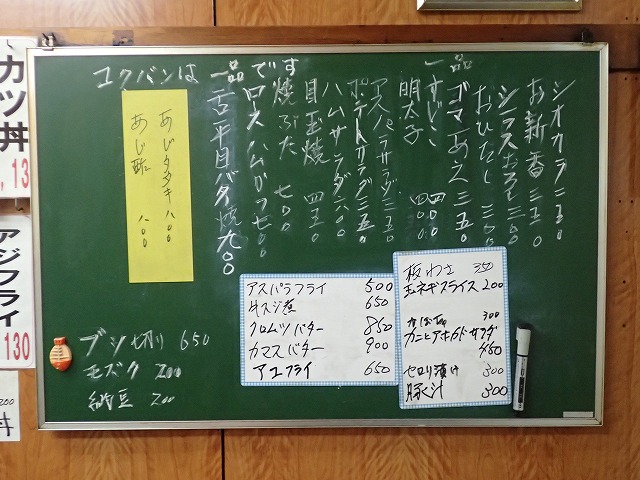 シオカラ 二五〇
お新香 三五〇
シラスおろし 三五〇
おひたし 三五〇
ゴマあえ 三五〇
一品
すじこ 四〇〇
明太子 四〇〇
アスパラサラダ 三五〇
ポテトサラダ 三五〇
ハムサラダ 六〇〇
目玉焼 四五〇
焼ぶた 七〇〇
ロースハムカツ 七〇〇
舌平目バタ焼 九〇〇
コクバンは
一品
です
あじタタキ 八〇〇
あじ酢 八〇〇
ブシ切り 650
モズク 200
納豆 200
アスパラフライ 500
牛スジ煮 650
クロムツバター 850
カマスバター 900
アユフライ 650
板わさ 350
玉ネギスライス 200
300
カニとアボカドサラダ
450
セロリ漬け 300
豚汁 300
カツ丼
,13
アジフライ
130
200
丼